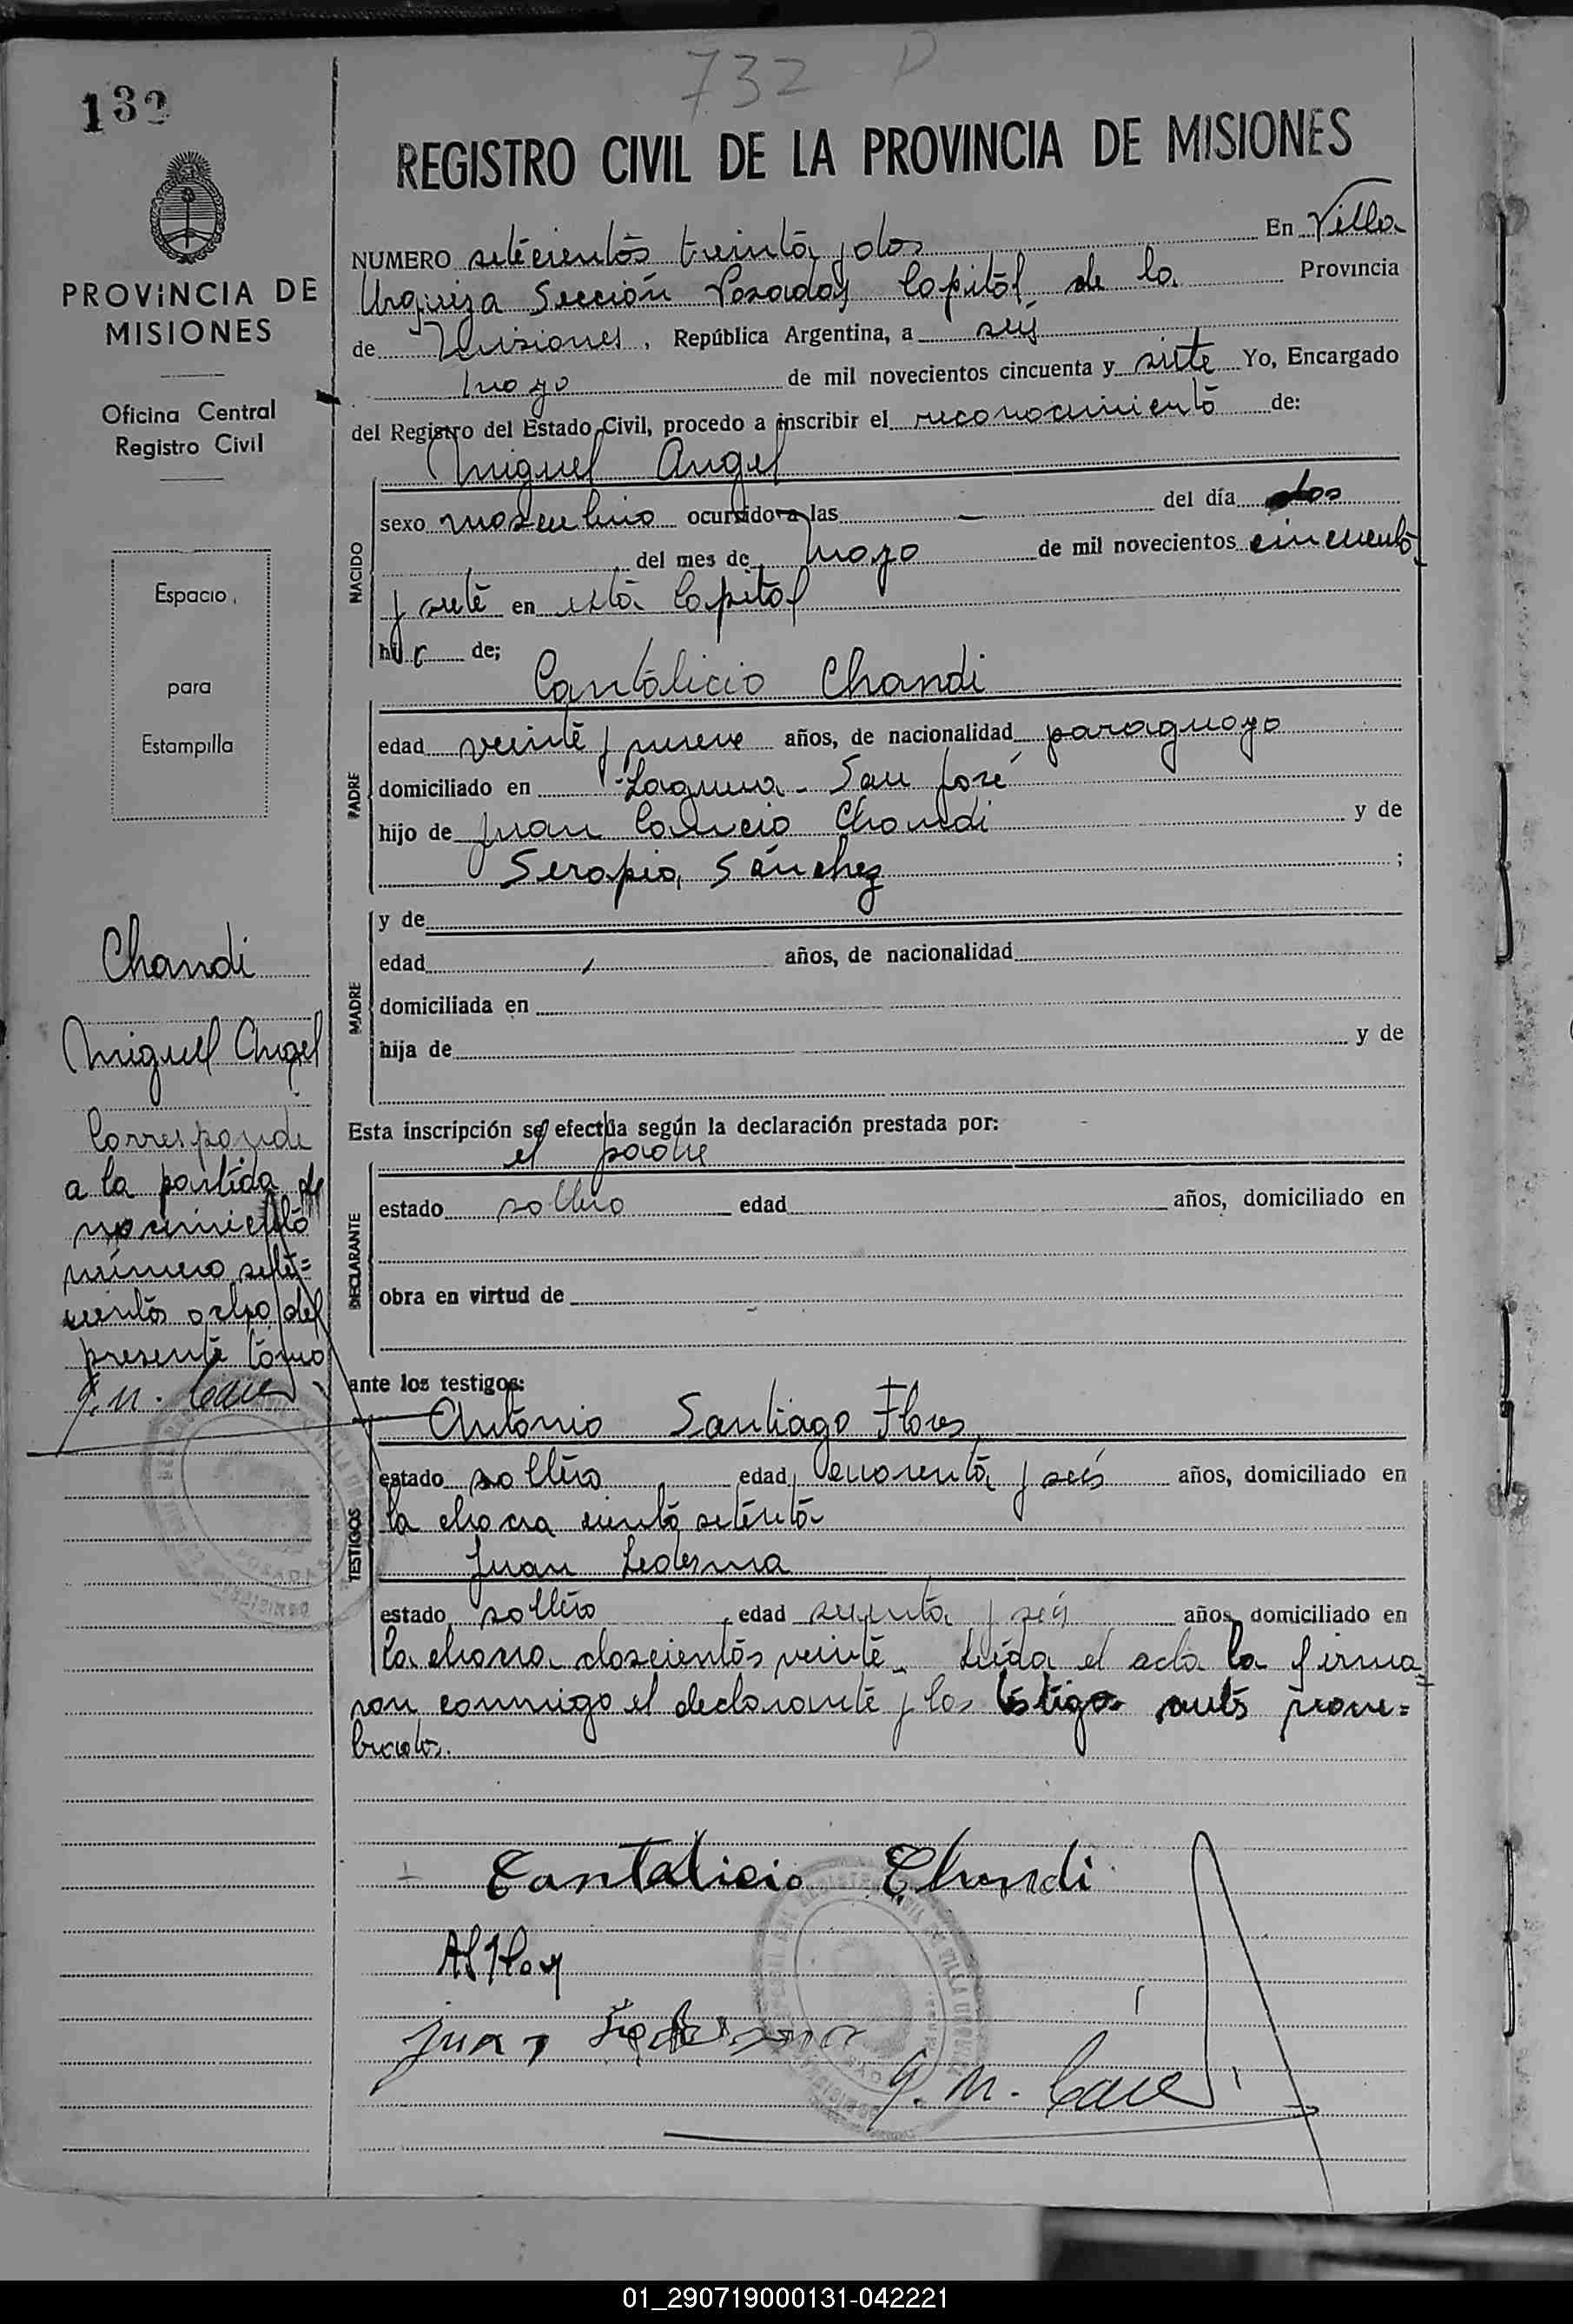 732 P
132
REGISTRO CIVIL DE LA PROVINCIA DE MISIONES
PROVINCIA DE
MISIONES
Oficina Central
Registro Civil
Espacio
para
Estampilla
NUMERO setecientos treinta y dos En Villa
Urquiza Sección Posadas Capital de la Provincia
de Misiones, República Argentina, a seis
mayo de mil novecientos cincuenta y siete Yo, Encargado
del Registro del Estado Civil, procedo a inscribir el reconocimiento de:
Miguel Angel
NACIDO
sexo masculino ocurrido a las - del día dos
del mes de mayo de mil novecientos cincuenta
y siete en esta Capital
hijo de;
Cantalicio Chandi
PADRE
edad veinte y nueve años, de nacionalidad paraguayo
domiciliado en Laguna - San José
hijo de Juan Chandi y de
Serapia Sánchez ;
MADRE
y de
edad años, de nacionalidad
domiciliada en
hija de y de
Chandi
Miguel Angel
Corresponde
a la partida de
nacimiento
número sete=
cientos ocho del
presente tomo
Esta inscripción se efectúa según la declaración prestada por:
el padre
DECLARANTE
estado soltero edad años, domiciliado en
obra en virtud de
ante los testigos:
Antonio Santiago Flores
TESTIGOS
estado soltero edad cuarenta y seis años, domiciliado en
la chacra ciento setenta
Juan Ledesma
estado soltero edad y seis años, domiciliado en
la chacra doscientos veinte. Leída el acta la firma=
ron conmigo el declarante y los testigos ants nom=
brados.
Cantalicio Chandi
ASFlores
Juan Ledesma
01_290719000131-042221